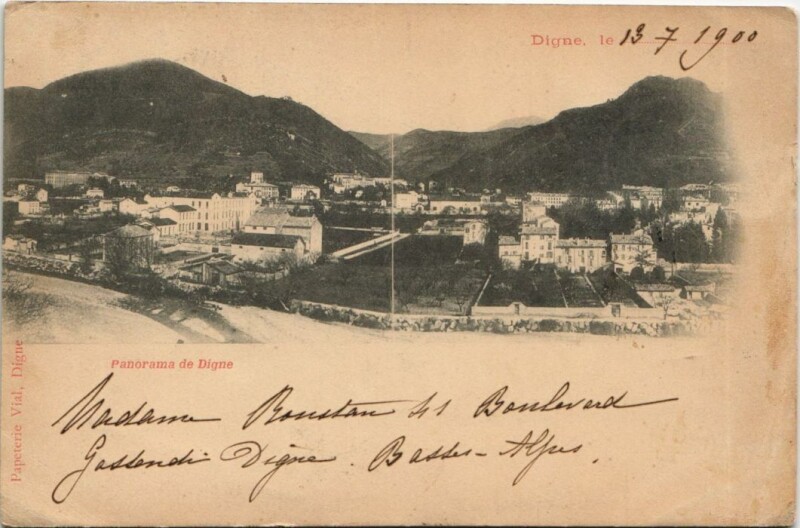 Digne, le 13 7 1900
Panorama de Digne
Papeterie Vial, Digne
Madame Roustan 41 Boulevard
Gassendi Digne. Basses-Alpes.